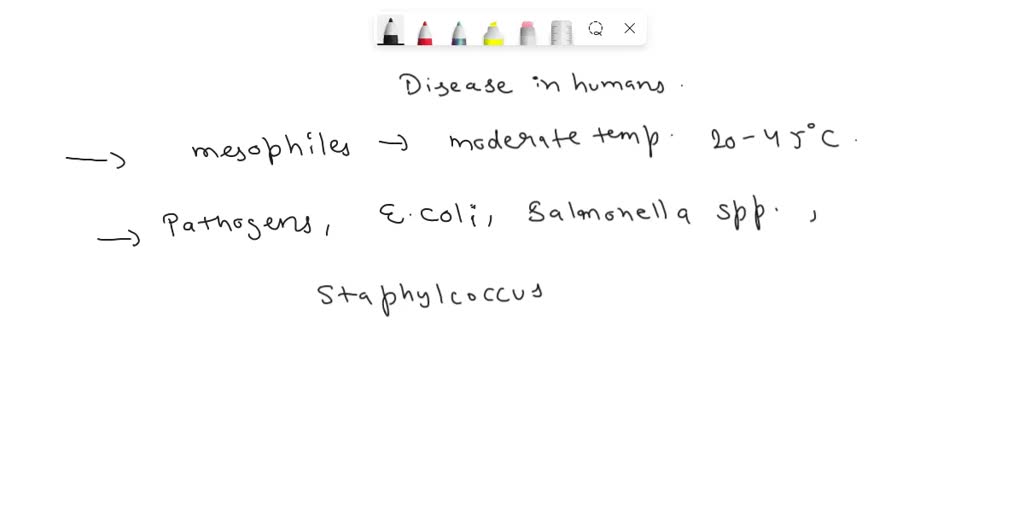 Disease in humans.
→ mesophiles → moderate temp. 20-45°C.
→ Pathogens, E. coli, Salmonella spp.,
Staphylcoccus